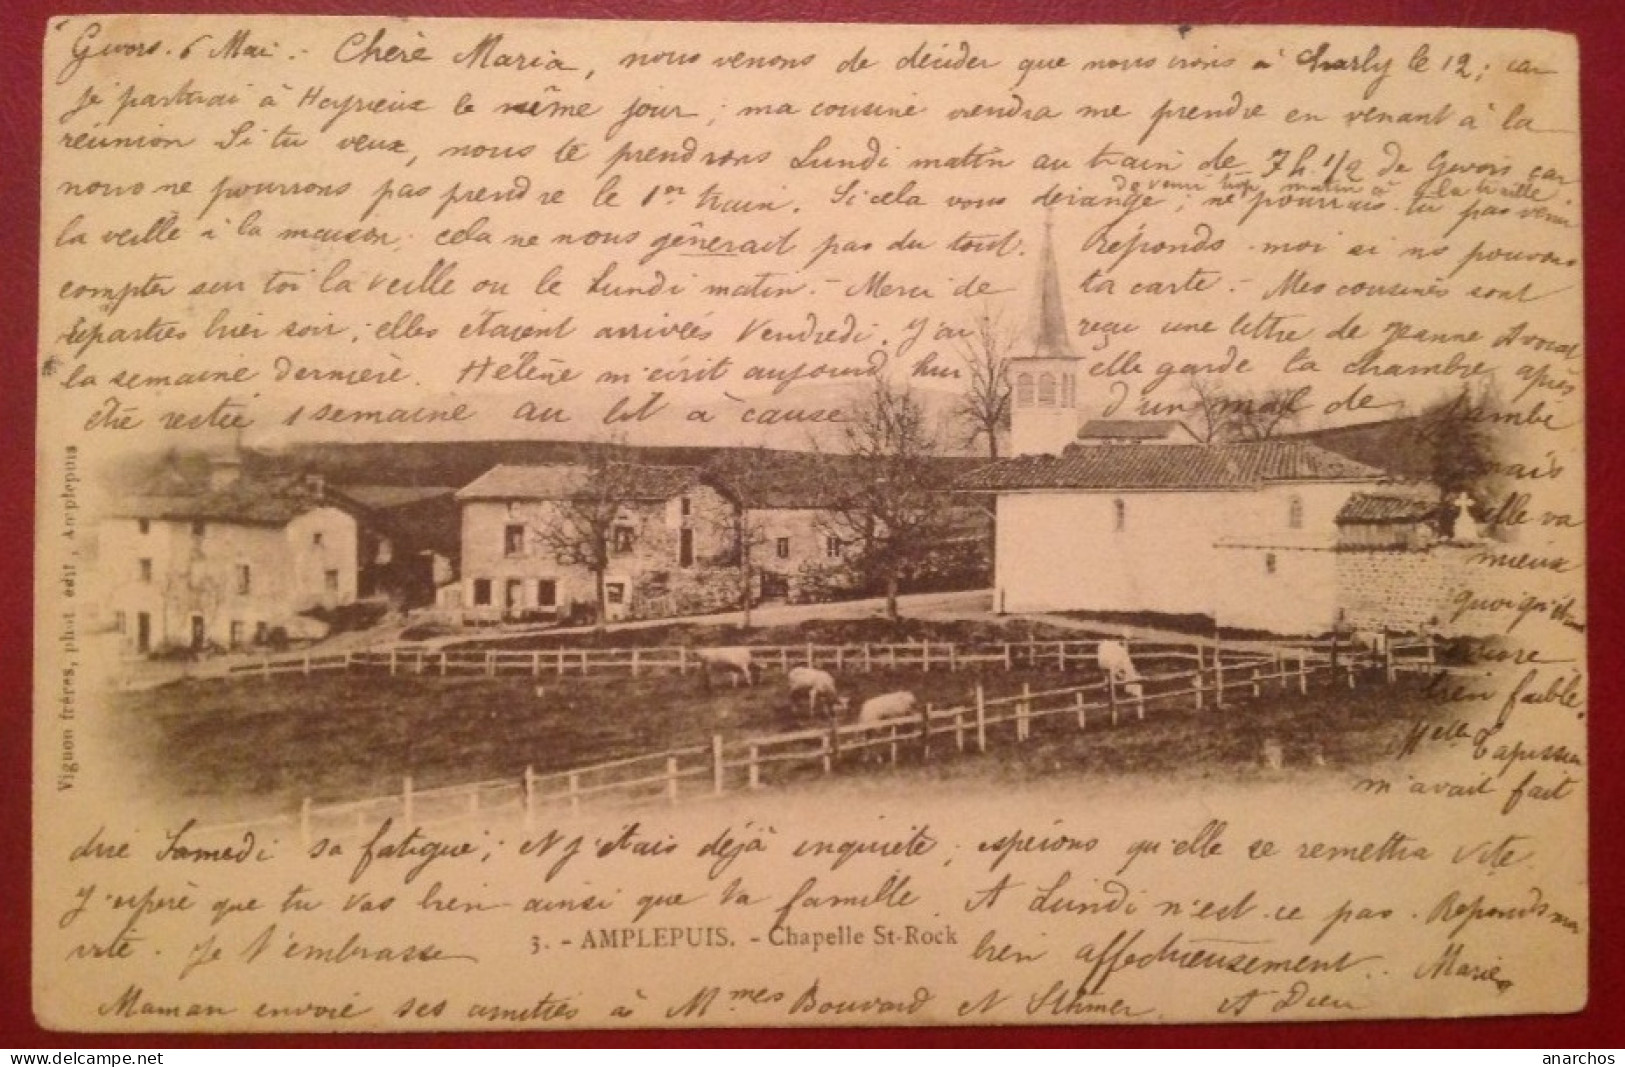 Givors. 6 Mai. - Chère Maria, nous venons de décider que nous irons à Charly le 12; car
je partirai à Heyrieux le même jour; ma cousine viendra me prendre en venant à la
réunion Si tu veux, nous te prendrons Lundi matin au train de 7h. 1/2 de Givors car
nous ne pourrons pas prendre le 1er train. Si cela vous dérange, de venir trop matin à la ne pourrais-tu pas venir
la veille à la maison, cela ne nous gênerait pas du tout. Réponds-moi si ns pouvons
compter sur toi la veille ou le Lundi matin. - Merci de ta carte. - Mes cousines sont
reparties hier soir; elles étaient arrivées Vendredi. J'ai reçu une lettre de Jeanne
la semaine dernière. Hélène m'écrit aujourd'hui elle garde la chambre après
être restée 1 semaine au lit à cause d'un mal de jambe
mais
elle va
mieux
quoiqu'étant
encore
bien faible.
Melle
m'avait fait
dire Samedi sa fatigue; et j'étais déjà inquiète; espérons qu'elle se remettra vite.
J'espère que tu vas bien ainsi que ta famille. A Lundi n'est-ce pas. Réponds moi
vite. Je t'embrasse bien affectueusement. Marie
Maman envoie ses amitiés à Mmes Bouvard et A Dieu
3. - AMPLEPUIS. - Chapelle St-Rock
Vignon frères, phot édit, Amplepuis
www.delcampe.net
anarchos